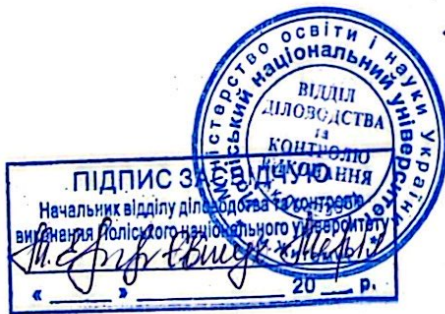 Міністерство освіти і науки України
Поліський національний університет
ВІДДІЛ
ДІЛОВОДСТВА
та
КОНТРОЛЮ
ВИКОНАННЯ
ПІДПИС ЗАСВІДЧУЮ
Начальник відділу діловодства та контролю
виконання Поліського національного університету
« » 20 р.